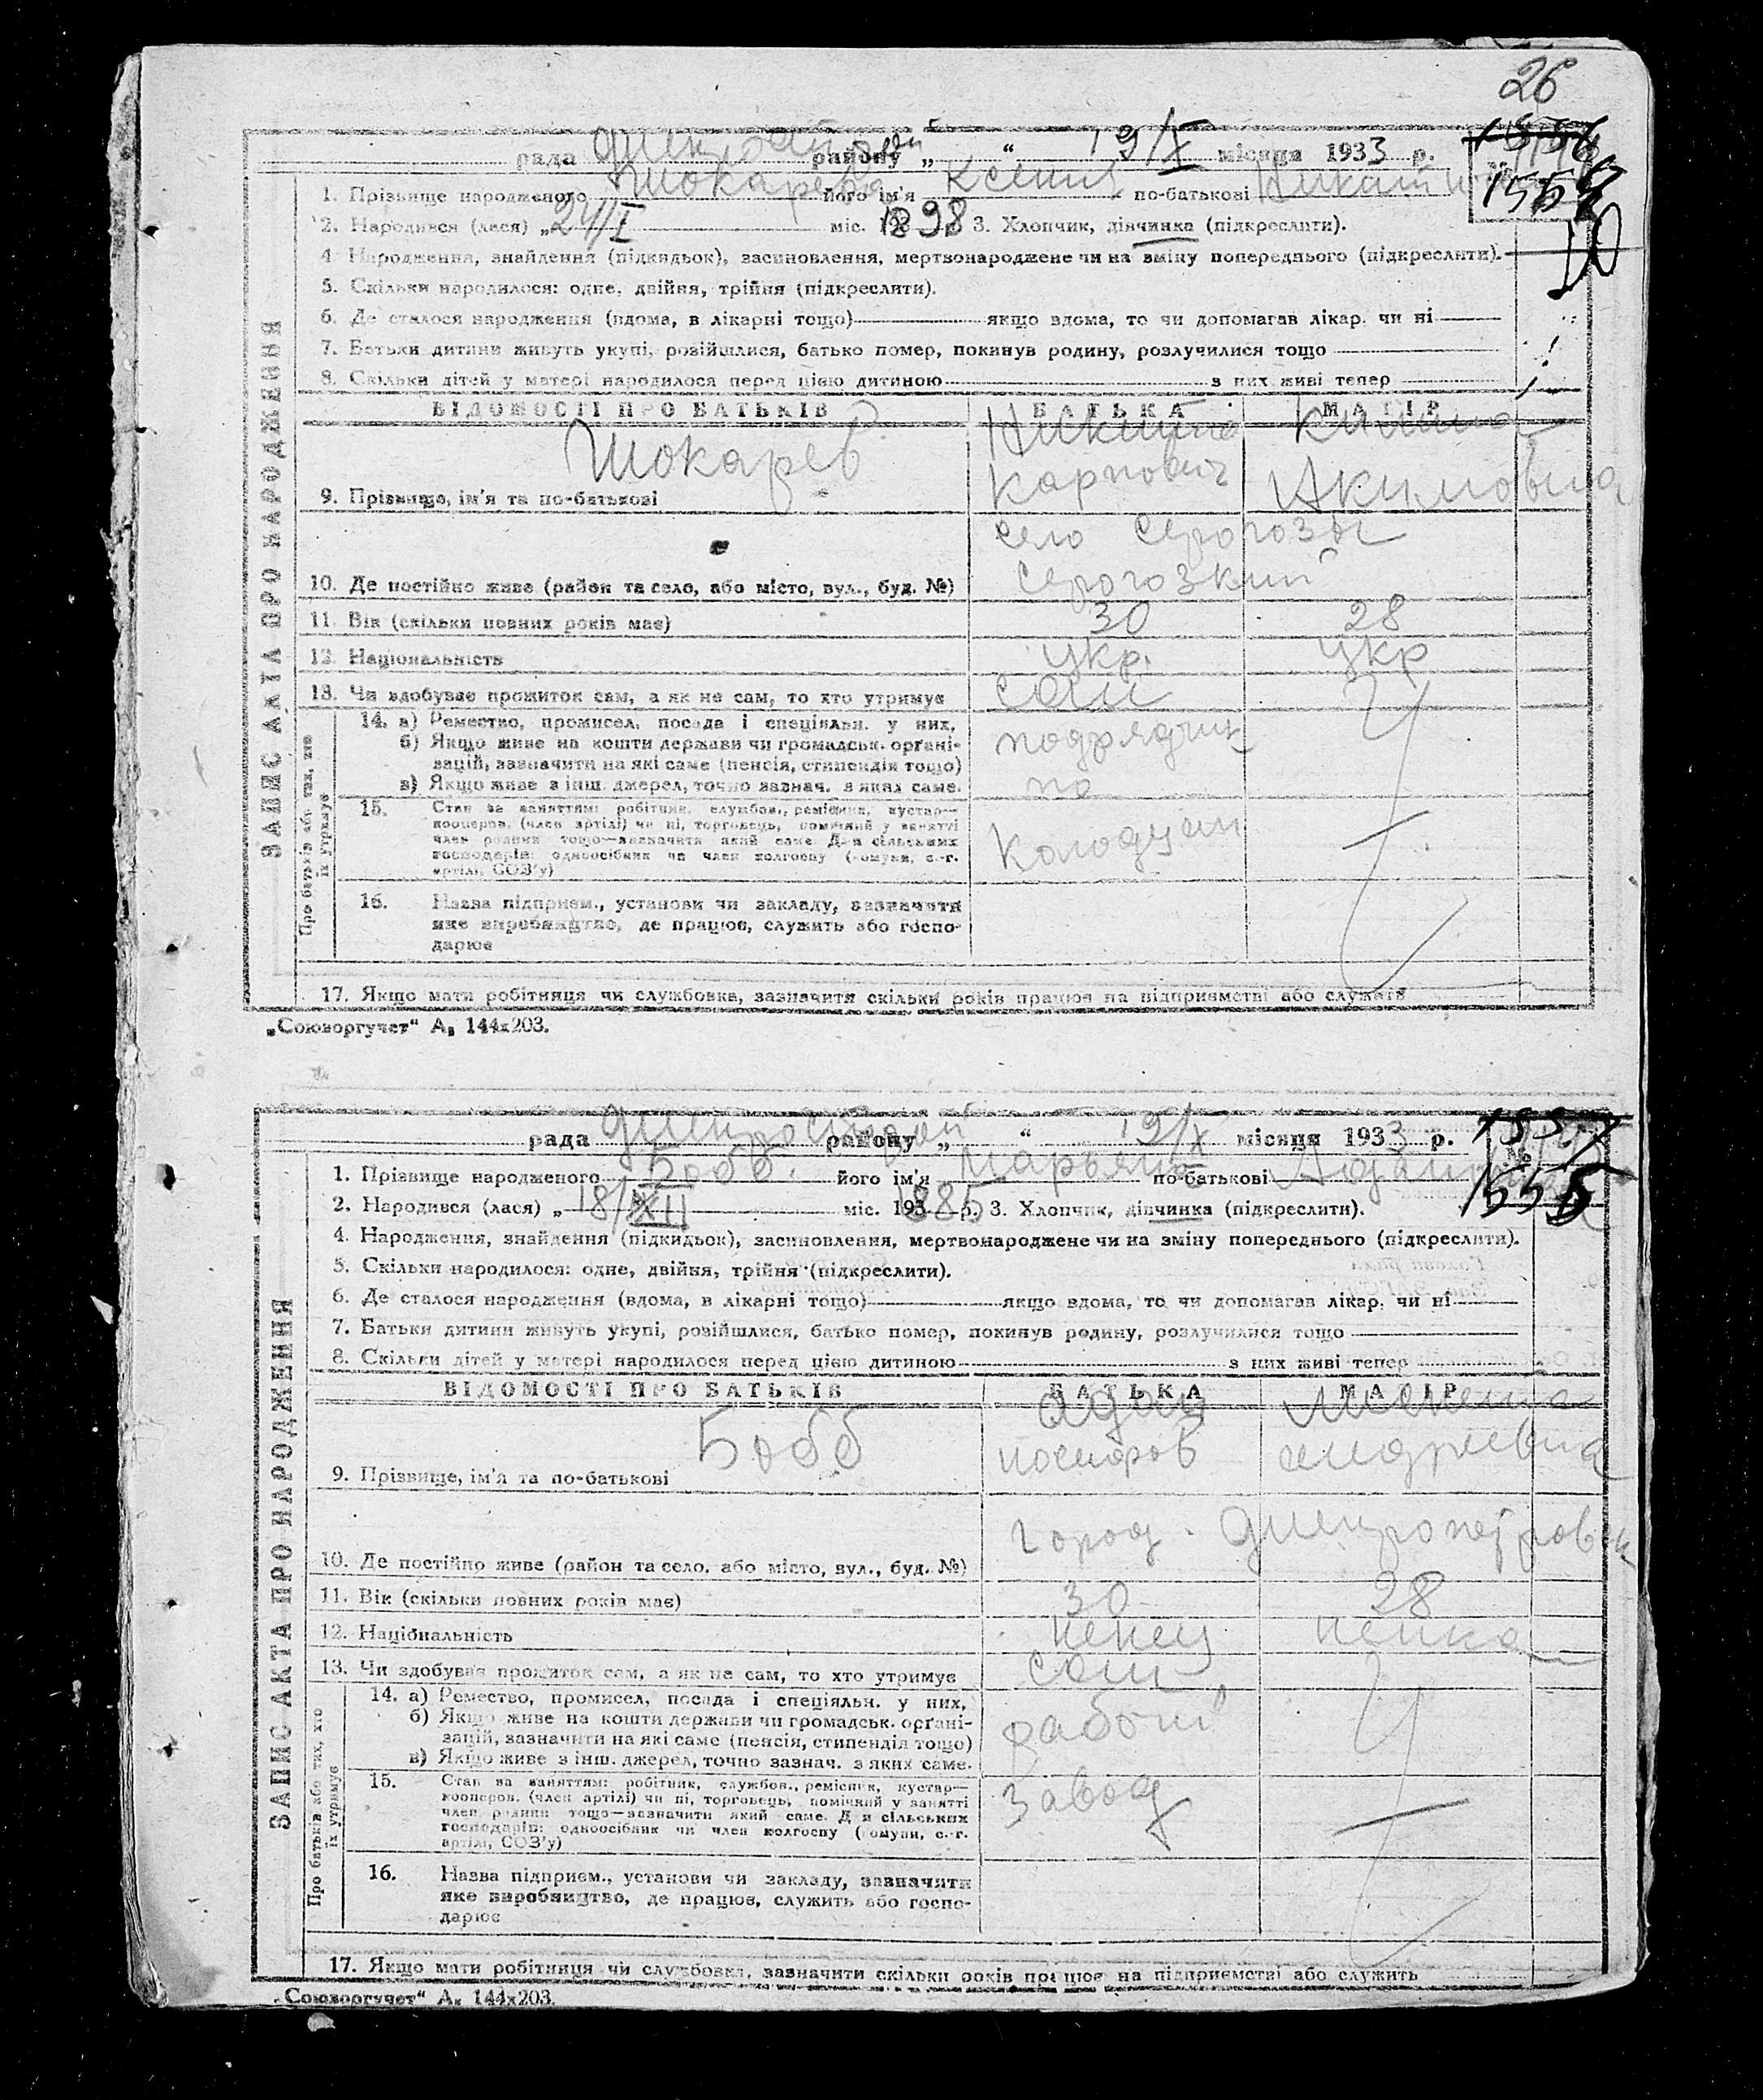 26
рада Днепрострой району „ “ 19/X місяця 1933 р.
№
1. Прізвище народженого Шокарева його ім'я Ксения по-батькові
2. Народився (лася) „ 24/I міс. 1898 3. Хлопчик, дівчинка (підкреслити).
4. Народження, знайдення (підкидьок), засиновлення, мертвонароджене чи на зміну попереднього (підкреслити).
5. Скільки народилося: одне, двійня, трійня (підкреслити).
6. Де сталося народження (вдома, в лікарні тощо) якщо вдома, то чи допомагав лікар. чи ні
7. Батьки дитини живуть укупі, розійшлися, батько помер, покинув родину, розлучилися тощо
8. Скільки дітей у матері народилося перед цією дитиною з них живі тепер
ЗАПИС АКТА ПРО НАРОДЖЕННЯ
ВІДОМОСТІ ПРО БАТЬКІВ БАТЬКА МАТІР
9. Прізвище, ім'я та по-батькові Шокарев Никита Карпович Килина Акимовна
10. Де постійно живе (район та село, або місто, вул., буд. №) село Серогозы Серогозкий
11. Вік (скільки повних років має) 30 28
12. Національність укр. укр
13. Чи здобуває прожиток сам, а як не сам, то хто утримує сам
Про батьків або тих, хто їх утримує
14. а) Ремество, промисел, посада і спеціяльн. у них,
б) Якщо живе на кошти держави чи громадськ. орґані-
зацій, зазначити на які саме (пенсія, стипендія тощо)
в) Якщо живе з інш. джерел, точно зазнач. з яких саме.
подрядчик
по
15. Стан за заняттям: робітник, службов., ремісник, кустар—
кооперов. (член артілі) чи ні, торговець, помічний у занятті
член родини тощо—зазначити який саме. Для сільських
господарів: одноосібник чи член колгоспу (комуни, с.-г.
артілі, СОЗ'у)
16. Назва підприєм., установи чи закладу, зазначити
яке виробництво, де працює, служить або госпо-
дарює
17. Якщо мати робітниця чи службовка, зазначити скільки років працює на підприємстві або служить
„Союзоргучет“ А₅ 144х203.
рада Днепрострой району „ “ 19/X місяця 1933 р.
1557
№
1. Прізвище народженого Бобб. його ім'я Марьяна по-батькові
2. Народився (лася) „ 18/XII міс. 1885 р. 3. Хлопчик, дівчинка (підкреслити).
4. Народження, знайдення (підкидьок), засиновлення, мертвонароджене чи на зміну попереднього (підкреслити).
5. Скільки народилося: одне, двійня, трійня (підкреслити).
6. Де сталося народження (вдома, в лікарні тощо) якщо вдома, то чи допомагав лікар. чи ні
7. Батьки дитини живуть укупі, розійшлися, батько помер, покинув родину, розлучилися тощо
8. Скільки дітей у матері народилося перед цією дитиною з них живі тепер
ЗАПИС АКТА ПРО НАРОДЖЕННЯ
ВІДОМОСТІ ПРО БАТЬКІВ БАТЬКА МАТІР
9. Прізвище, ім'я та по-батькові Бобб Адам андреевна
10. Де постійно живе (район та село, або місто, вул., буд. №) город. Днепропетровск
11. Вік (скільки повних років має) 30 28
12. Національність немец немка
13. Чи здобуває прожиток сам, а як не сам, то хто утримує сам
Про батьків або тих, хто їх утримує
14. а) Ремество, промисел, посада і спеціяльн. у них,
б) Якщо живе на кошти держави чи громадськ. орґані-
зацій, зазначити на які саме (пенсія, стипендія тощо)
в) Якщо живе з інш. джерел, точно зазнач. з яких саме.
15. Стан за заняттям: робітник, службов., ремісник, кустар—
кооперов. (член артілі) чи ні, торговець, помічний у занятті
член родини тощо—зазначити який саме. Для сільських
господарів: одноосібник чи член колгоспу (комуни, с.-г.
артілі, СОЗ'у)
завод
16. Назва підприєм., установи чи закладу, зазначити
яке виробництво, де працює, служить або госпо-
дарює
17. Якщо мати робітниця чи службовка, зазначити скільки років працює на підприємстві або служить
„Союзоргучет“ А₅ 144х203.